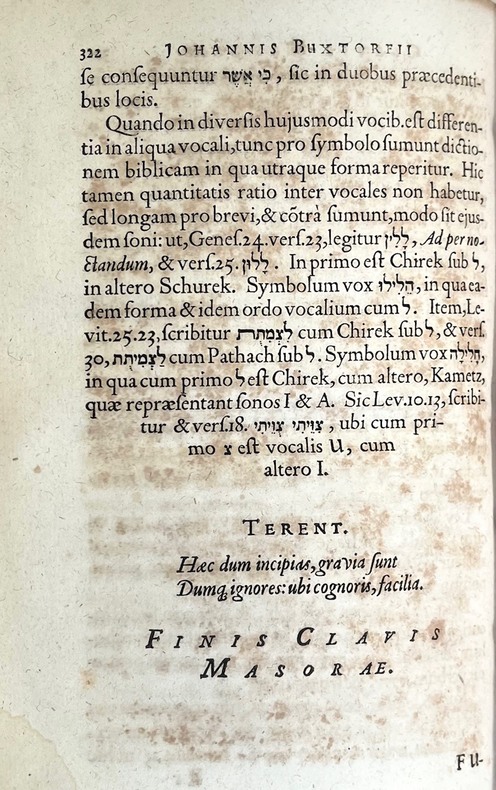 322 JOHANNIS BUXTORFII
ſe conſequuntur כִּי אֲשֶׁר, ſic in duobus præcedenti-
bus locis.
Quando in diverſis hujusmodi vocib. eſt differen-
tia in aliqua vocali, tunc pro ſymbolo ſumunt dictio-
nem biblicam in qua utraque forma reperitur. Hic
tamen quantitatis ratio inter vocales non habetur,
ſed longam pro brevi, & cõtrà ſumunt, modo ſit ejus-
dem ſoni: ut, Geneſ. 24. verſ. 23, legitur לָלִין, Ad perno-
ctandum, & verſ. 25. לָלוּן. In primo eſt Chirek ſub ל,
in altero Schurek. Symbolum vox הֵלִילוּ, in qua ea-
dem forma & idem ordo vocalium cum ל. Item, Le-
vit. 25. 23, ſcribitur לִצְמִתֻת cum Chirek ſub ל, & verſ.
30, לַצְמִיתֻת cum Pathach ſub ל. Symbolum vox חָלִילָה,
in qua cum primo ל eſt Chirek, cum altero, Kametz,
quæ repræſentant ſonos I & A. Sic Lev. 10. 13, ſcribi-
tur & verſ. 18. צֻוֵּיתִי צִוֵּיתִי, ubi cum pri-
mo צ eſt vocalis U, cum
altero I.
TERENT.
Hæc dum incipias, gravia ſunt
Dumq; ignores: ubi cognoris, facilia.
FINIS CLAVIS
MASORAE.
FU-